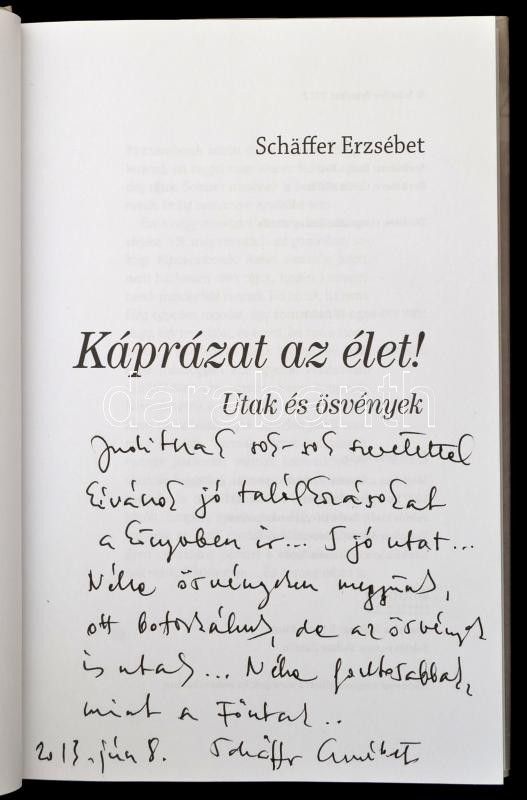 Schäffer Erzsébet
Káprázat az élet!
darabanth
Utak és ösvények
Juditnak sok-sok szeretettel
kívánok jó találkozásokat
a könyvben is... S jó utat...
Néha ösvényeken megyünk,
ott botorkálunk, de az ösvények
is utak... Néha fontosabbak,
mint a Főutak..
2013. jún 8. Schäffer Erzsébet